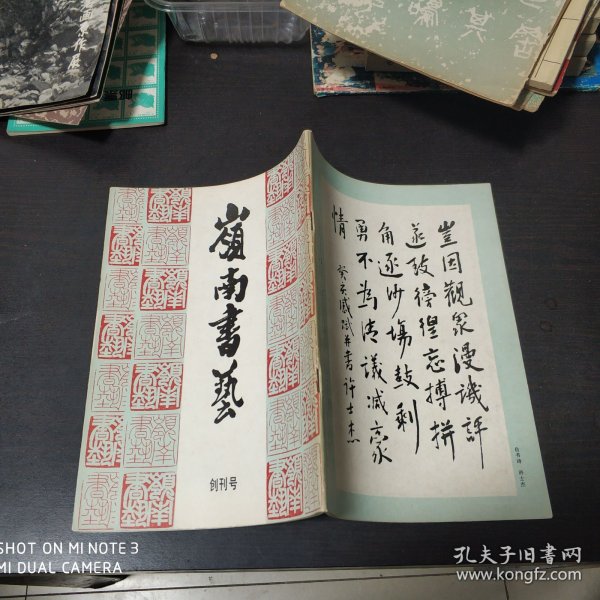 嶺南書藝
创刊号
豈因觀衆漫譏評
遂致徬徨忘搏拼
角逐沙場鼓剩
勇不為清議减豪
情
癸亥感賦并書 许士杰
自书诗 许士杰
SHOT ON MI NOTE 3
MI DUAL CAMERA
孔夫子旧书网
www.kongfz.com